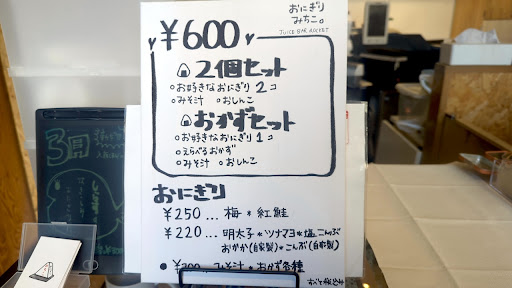 おにぎり
みちこ。
JUICE BAR ROCKET
¥600
2個セット
お好きなおにぎり2コ
みそ汁 おしんこ
おかずセット
お好きなおにぎり1コ
えらべるおかず
みそ汁 おしんこ
おにぎり
¥250...梅*紅鮭
¥220...明太子*ツナマヨ*塩こんぶ
おかか(自家製)*こんぶ(自家製)
みそ汁*おかず各種
3月